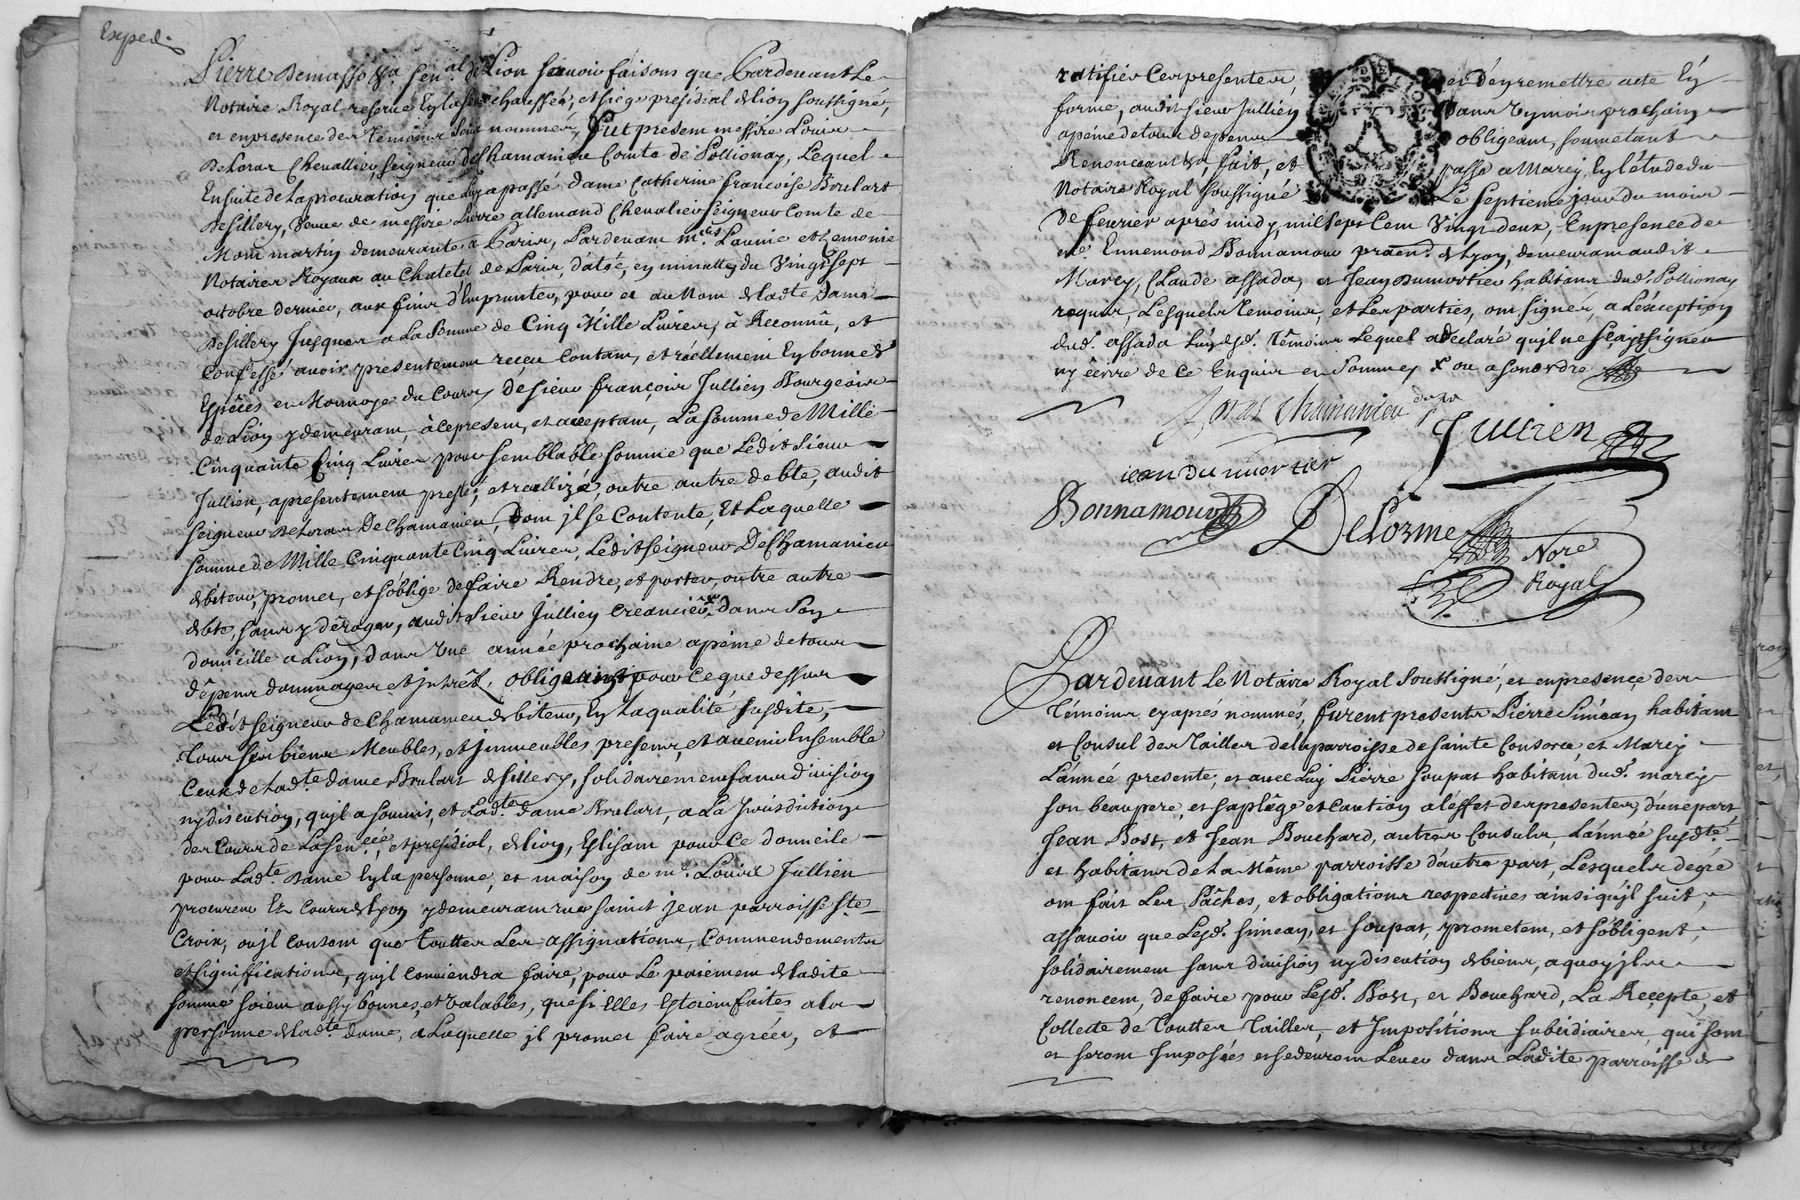 Exped.
Pierre Demasso &a. sen.al de Lion scavoir faisons que Pardevant Le
Notaire Royal reservé En la senechaussée, et siege presidial de lion soussigné,
et en presence des Témoins sous nommés, fut present messire Louis
De Loras Chevallier, seigneur de Chamanieu Comte de Pollionay, Lequel
En suite de La procuration que luy a passé dame Catherine francoise Brulart
De Sillery, veuve de messire Pierre allemand Chevalier seigneur Comte de
Mont martin demeurante a Paris, Pardevant m.es Launie et Lemoine
Notaires Royaux au Chatelet de Paris, datée, en minutte, du vingt sept
octobre dernier, aux fins d'Emprunter, pour et au Nom de ladte. Dame
de sillery Jusques a La somme de Cinq Mille Livres, à Reconnu, et
Confessé avoir presentement receu Contant, et réellement En bonnes
Espèces et Monnoye du Cours, de sieur françois Jullien Bourgeois
de Lion y demeurant, à ce present, et acceptant, La somme de Mille
Cinquante Cinq Livres pour semblable somme que Ledit Sieur
Jullien, a presentement presté, et reallizé, outre autre debte, audit
seigneur De Loras De Chamanieu, dont jl se Contente, Et Laquelle
somme de Mille Cinquante Cinq Livres, Ledit seigneur De Chamanieu
debiteur, promet, et s'oblige de faire Rendre, et porter, outre autre
debte, sans y déroger, audit sieur Jullien Creancier, x dans son
domicille a Lion, dans une année prochaine a peine de tous
dêpens dommages et jntrêts, obligeants pour ce que dessus
Ledit seigneur de Chamanieu debiteur, En La qualité susdite,
Tous ses biens Meubles, et jmmeubles presens, et avenir Ensemble
Ceux de Lad.te dame Brulart de sillery, solidairement sans division
ny discution, qu'jl a soumis, et Lad.te dame Brulart, a La Jurisdiction
des Cours de La Sen.ceé, et présidial, de lion, Eslisant pour ce domicile
pour Lad.te Dame En la personne, et maison de m.e Louis Jullien
procureur Es Cours de lyon y demeurant rue saint jean parroisse Ste.
Croix, ou jl Consent que Toutter Les assignations, Commendements
et significations, qu'jl Conviendra faire, pour Le paiement de ladite
somme soient aussy bonnes, et valables, que si Elles Estoient faites a la
personne de lad.te dame, a Laquelle jl promet faire agréer, et
ratifier Ces presentes, et d'en remettre acte En
forme, audit sieur Jullien, dans un mois prochain
a peine de tous depens obligeant, soumetant
Renonceant &a fait, et passé a Marcy, En l'étude du
Notaire Royal soussigné Le septieme jour du mois
De fevrier après midy, mil sept Cent Vingt deux, En presence de
me. Ennemond Bonnamour praen. de Lyon, demeurant audit
Marcy, Claude assada, et Jean Dumortier habitans dud. Pollionay
requis, Lesquels Témoins, et Les parties, ont signés, a L'exception
dud. assada L'un desd. Têmoins Lequel a declaré qu'jl ne scait signer
ny ecrire de Ce Enquis et Sommé, x ou a son ordre
Loras Chamanieu
Jullien
iean du mortier
Bonnamour
Delorme
Nore
Royal
Pardevant Le Notaire Royal soussigné, et en presence des
Témoins cy aprés nommés, furent presents Pierre Simean habitant
et Consul des Tailles de la parroisse de Sainte Consorce et Marcy
L'année presente, et avec Luy Pierre Soupat habitant dud. marcy
son beaupere, et sa plége et Caution a l'effet des presentes, d'une part
Jean Bost, et Jean Bouchard, autres Consuls, L'année susd.te,
et habitans de La Même parroisse d'autre part, Lesquels de gré
ont fait Les Pâches, et obligations respectives ainsi qu'jl suit,
assavoir que Lesd. simean, et soupat, prometent, et s'obligent,
solidairement sans division ny discution de biens, a quoy jls
renoncent, de faire pour Lesd. Bost, et Bouchard, La Recepte, et
Collecte de Toutter Tailles, et Impositions subsidiaires, qui sont
et seront Jmposées et se devront Lever dans Ladite parroisse de